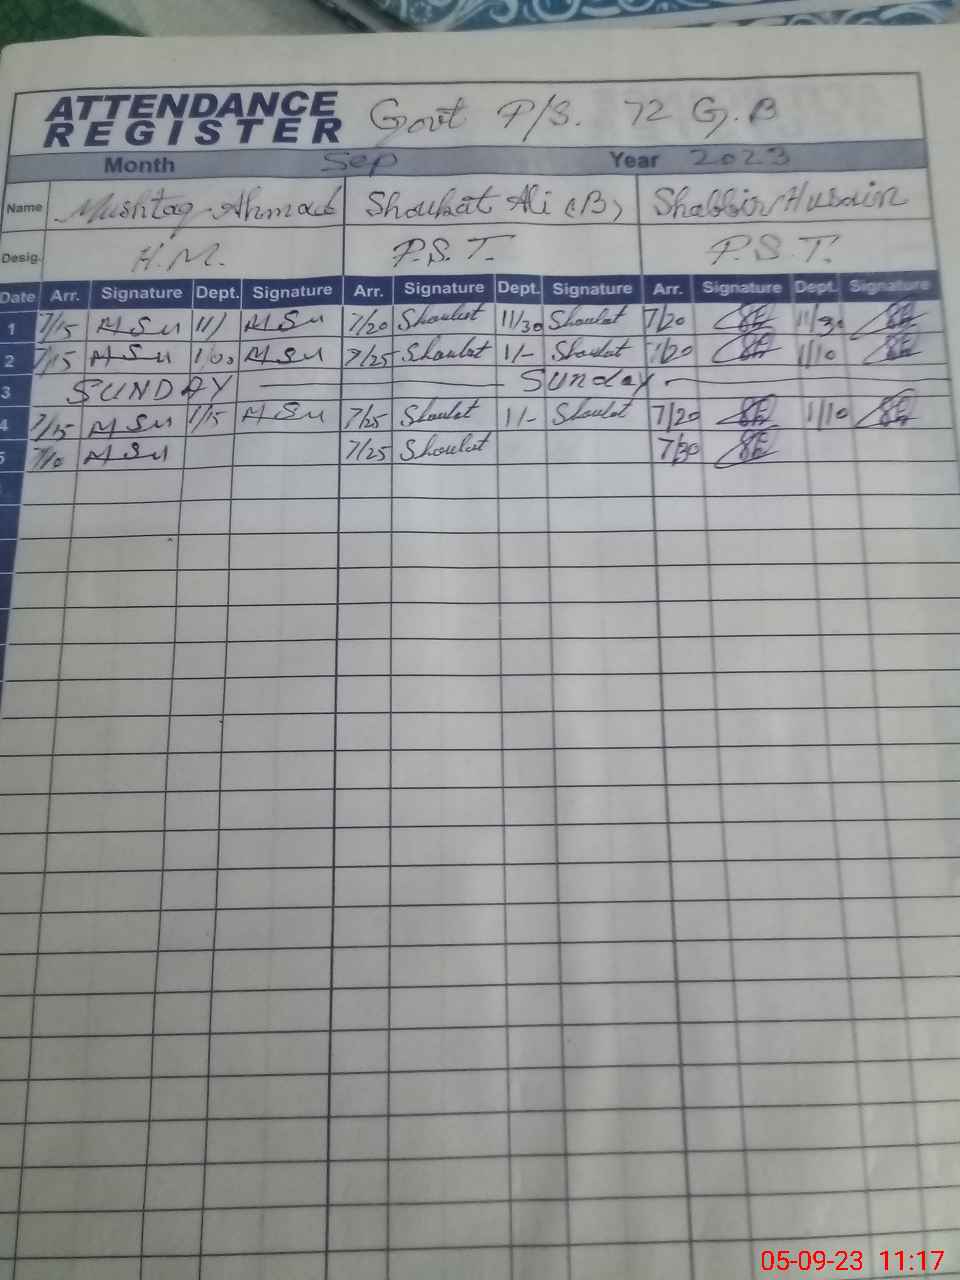 ATTENDANCE REGISTER Govt P/S. 72 G.B
Month Sep Year 2023
Name Mushtaq Ahmad Shoukat Ali (B) Shabbir Husain
Desig. H.M. P.S.T. P.S.T.
Date Arr. Signature Dept. Signature Arr. Signature Dept. Signature Arr. Signature Dept. Signature
1 7/15 11/ 7/20 Shoukat 11/30 Shoukat 7/20 11/30
2 7/15 1/00 7/25 Shoukat 1/- Shoukat 7/20 1/10
3 SUNDAY Sunday
4 7/15 1/15 7/25 Shoukat 1/- Shoukat 7/20 1/10
5 7/10 7/25 Shoukat 7/30
05-09-23 11:17